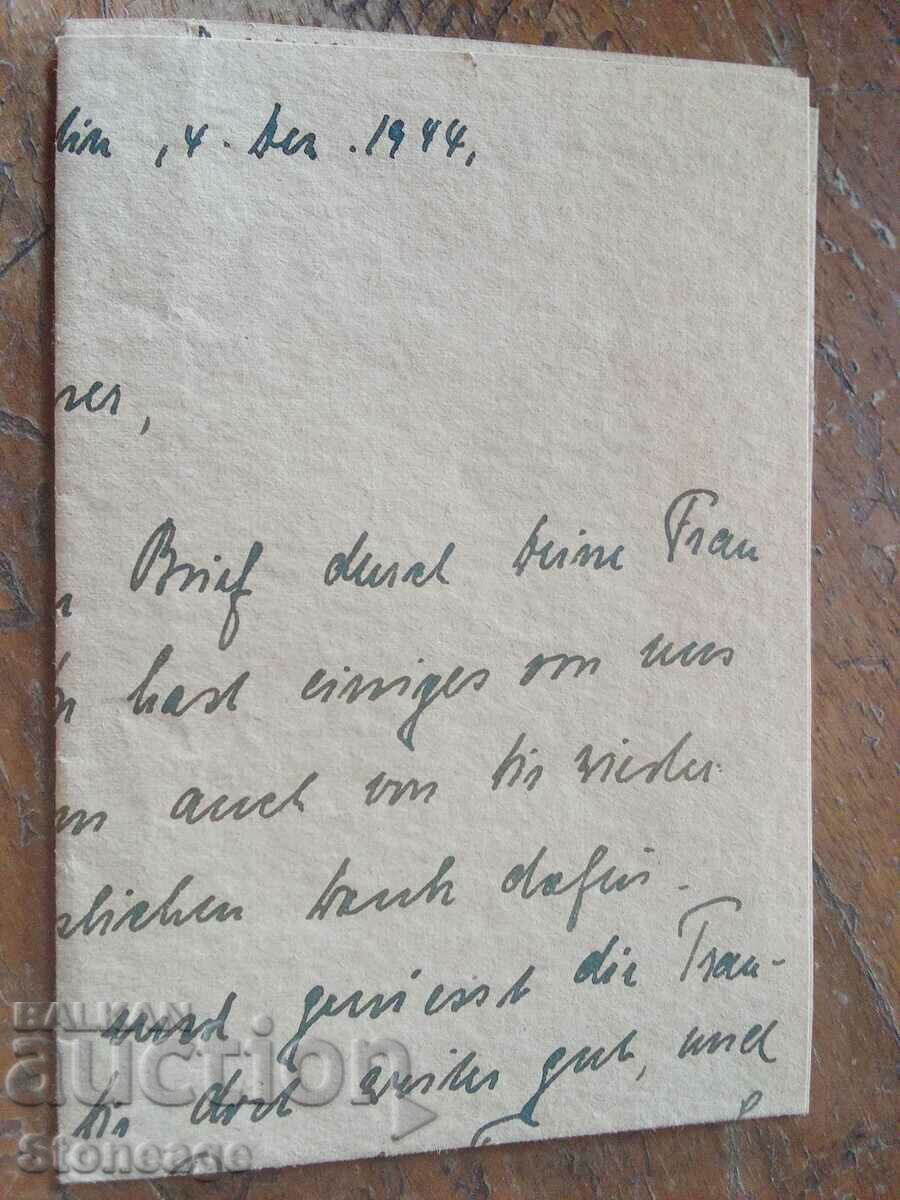 lin, 4. Dez. 1944,
ser,
n Brief durch Deine Frau
hast einiges von uns
auch von Dir wieder
zlichen Dank dafür.
und geniesst die Trau-
Dir dort weiter gut, und
BALKAN
auction
Stoneage